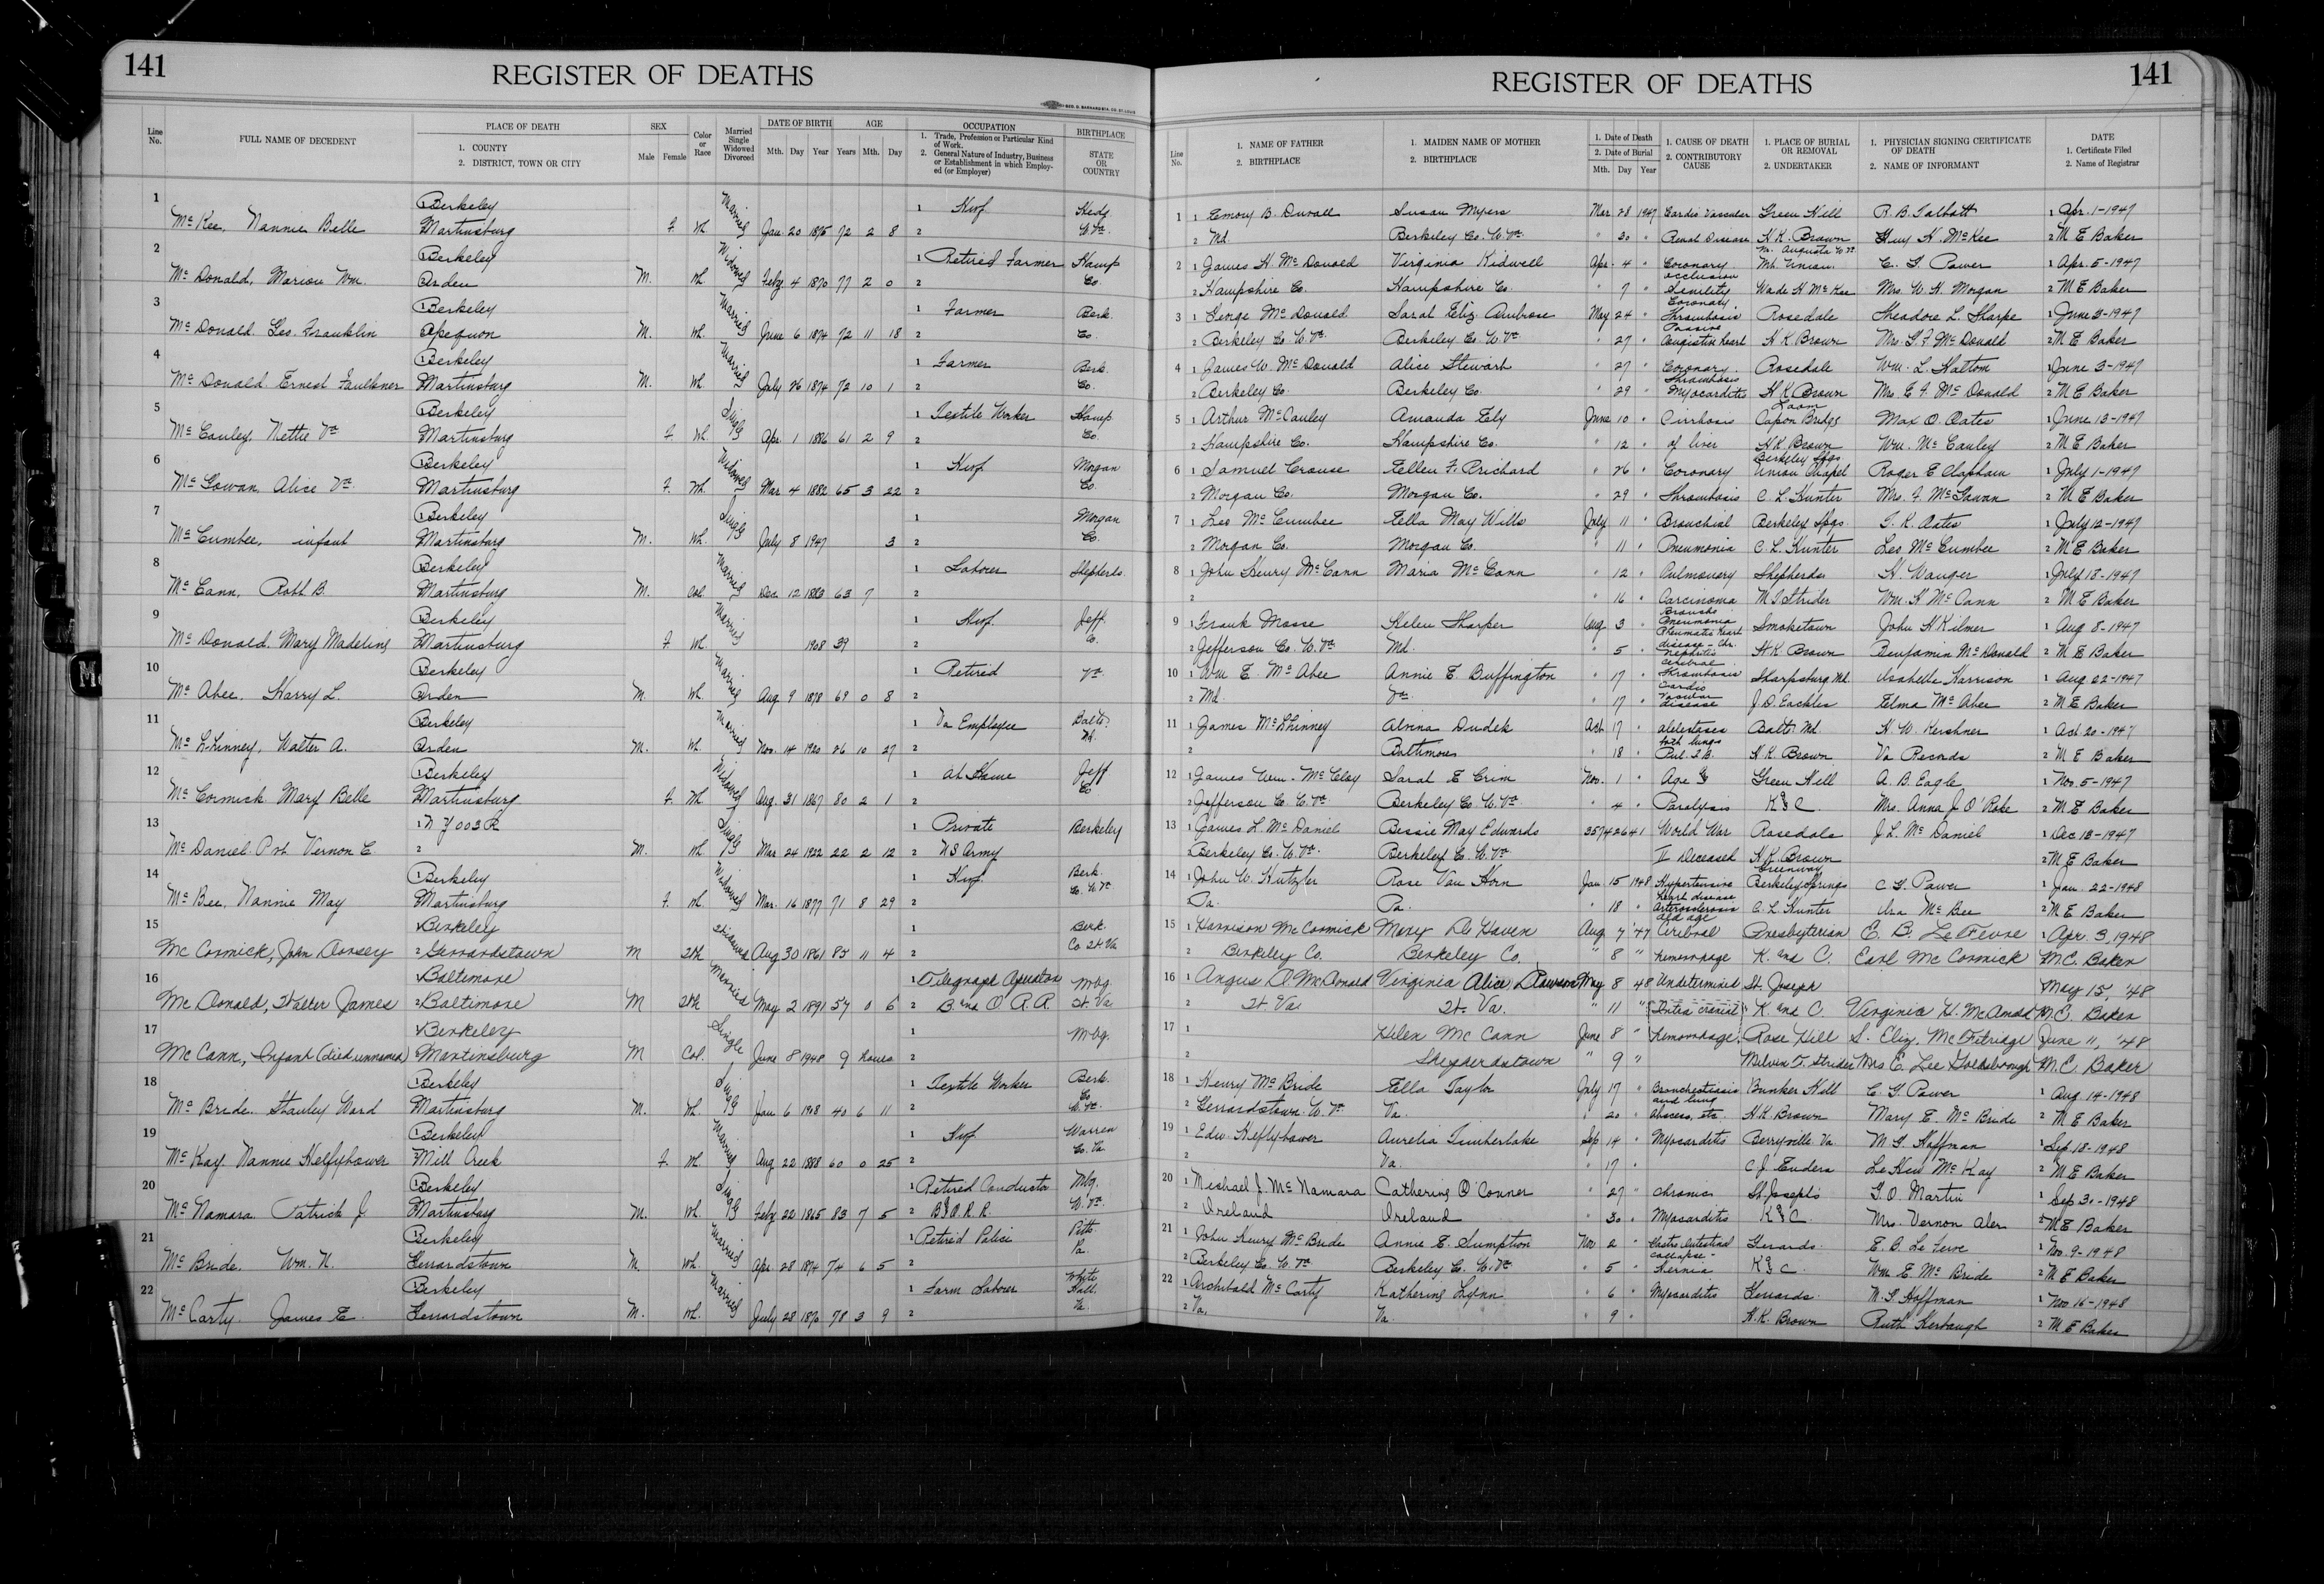 141
REGISTER OF DEATHS
Line No. FULL NAME OF DECEDENT PLACE OF DEATH 1. COUNTY 2. DISTRICT, TOWN OR CITY SEX Male Female Color or Race Married Single Widowed Divorced DATE OF BIRTH Mth. Day Year AGE Years Mth. Day OCCUPATION 1. Trade, Profession or Particular Kind of Work. 2. General Nature of Industry, Business or Establishment in which Employed (or Employer) BIRTHPLACE STATE OR COUNTRY
1 1 Berkeley Married 1 Kwf. Hedg.
McKee, Nannie Belle Martinsburg F. Wh. Jan. 20 1875 72 2 8 2 W.Va.
2 Berkeley Widowed 1 Retired Farmer Hamp
McDonald, Marion Wm. Arden M. Wh. Feby 4 1870 77 2 0 2 Co.
3 1 Berkeley Married 1 Farmer Berk.
McDonald Geo. Franklin Opequon M. Wh. June 6 1874 72 11 18 2 Co.
4 1 Berkeley Married 1 Farmer Berk.
McDonald Ernest Faulkner Martinsburg M. Wh. July 26 1874 72 10 1 2 Co.
5 Berkeley Single 1 Textile Worker Hamp
McCauley, Nettie Va Martinsburg F. Wh. Apr. 1 1886 61 2 9 2 Co.
6 Berkeley Widowed 1 Kwf Morgan
McGowan, Alice Va. Martinsburg F. Wh. Mar 4 1882 65 3 22 2 Co.
7 Berkeley Single 1 Morgan
McCumbee, infant Martinsburg M. Wh. July 8 1947 3 2 Co.
8 Berkeley Married 1 Laborer Shepherds.
McCann, Robt B. Martinsburg M. Col. Dec. 12 1883 63 7 2
9 Berkeley Married 1 Kwf. Jeff.
McDonald, Mary Madeline Martinsburg F. Wh. 1908 39 2 Co.
10 Berkeley Married 1 Retired Va.
McAbee. Harry L. Arden M. Wh. Aug 9 1878 69 0 8 2
11 Berkeley Married 1 Va Employee Balto. Md.
Walter A. Arden M. Wh. Nov. 14 1920 26 10 27 2
12 1 Berkeley Widowed 1 At Home Jeff Co
McCormick Mary Belle Martinsburg F. Wh. Aug. 31 1867 80 2 1 2
13 1 003 R Single 1 Private Berkeley
McDaniel Pvt. Vernon C. 2 M. Wh Mar 24 1922 22 2 12 2 US Army
14 1 Berkeley Widowed 1 Kwf. Berk.
McBee, Nannie May Martinsburg F. Wh. Mar. 16 1877 71 8 29 2 Co. W.Va
15 Berkeley Widowed 1 Berk.
McCormick, John Dorsey 2 Gerrardstown M Wh Aug 30 1861 85 11 4 2 Co W.Va
16 Baltimore Married 1 Telegraph Operator Mbg.
McDonald, Walter James 2 Baltimore M Wh May 2 1891 57 0 6 2 B. and O. R.R. W. Va
17 Berkeley Single 1 Mbg.
McCann, Infant (died unnamed) Martinsburg M Col. June 8 1948 9 hours 2
18 1 Berkeley Single 1 Textile Worker Berk. Co
McBride. Stanley Ward Martinsburg M. Wh. Jan 6 1908 40 6 11 2 W.Va.
19 1 Berkeley Married 1 Kwf Warren
McKay Nannie Helfybower Mill Creek F. Wh. Aug 22 1888 60 0 25 2 Co. Va.
20 1 Berkeley Single 1 Retired Conductor Mbg.
McNamara Patrick J Martinsburg M. Wh. Feby 22 1865 83 7 5 2 B&O.R.R. W.Va.
21 1 Berkeley Married 1 Retired Police Pitts.
McBride. Wm. N. Gerrardstown M. Wh. Apr. 28 1874 74 6 5 2 Pa.
22 Berkeley Married 1 Farm Laborer White Hall.
McCarty. James E. Gerrardstown M. Wh. July 28 1870 78 3 9 2 Va
141
REGISTER OF DEATHS
Line No. 1. NAME OF FATHER 2. BIRTHPLACE 1. MAIDEN NAME OF MOTHER 2. BIRTHPLACE 1. Date of Death 2. Date of Burial Mth. Day Year 1. CAUSE OF DEATH 2. CONTRIBUTORY CAUSE 1. PLACE OF BURIAL OR REMOVAL 2. UNDERTAKER 1. PHYSICIAN SIGNING CERTIFICATE OF DEATH 2. NAME OF INFORMANT DATE 1. Certificate Filed 2. Name of Registrar
1 1 Emory B. Duvall Susan Myers Mar 28 1947 Cardio Vascular Green Hill R. B. Talbott 1 Apr. 1-1947
2 Md. Berkeley Co. W.Va. " 30 " Renal Disease H K. Brown Guy H. McKee 2 M E Baker
2 1 James H McDonald Virginia Kidwell Apr. 4 " Coronary occlusion Mt. Union. Nr. Augusta W.Va. C. G. Power 1 Apr. 5-1947
2 Hampshire Co. Hampshire Co. " 7 " Senility Wade H McKee Mrs. W. H. Morgan 2 M E Baker
3 1 George McDonald Sarah Eliz. Ambrose May 24 " Coronary Thrombosis Rosedale Theodore L. Sharpe 1 June 3-1947
2 Berkeley Co. W.Va. Berkeley Co. W.Va. " 27 " Passive Congestive heart H K Brown Mrs. G F McDonald 2 M E Baker
4 1 James W. McDonald Alice Stewart " 27 " Coronary Thrombosis Rosedale Wm. L. Haltom 1 June 3-1947
2 Berkeley Co Berkeley Co. " 29 " Myocarditis H K Brown Mrs. E F McDonald 2 M E Baker
5 1 Arthur McCauley Amanda Ely June 10 " Cirrhosis Capon Bridge Max O. Oates 1 June 13-1947
2 Hampshire Co. Hampshire Co. " 12 " of liver H K Brown Wm. McCauley 2 M E Baker
6 1 Samuel Crouse Ellen F. Prichard " 26 " Coronary Berkeley Spgs Union Chapel Roger E Clapham 1 July 1-1947
2 Morgan Co. Morgan Co. " 29 " Thrombosis C. L. Hunter Mrs. F. McGowan 2 M E Baker
7 1 Leo McCumbee Ella May Wills July 11 " Bronchial Berkeley Spgs. G. K. Oates 1 July 12-1947
2 Morgan Co. Morgan Co. " 11 " Pneumonia C. L. Hunter Leo McCumbee 2 M E Baker
8 1 John Henry McCann Maria McCann " 12 " Pulmonary Shepherds H. Wanger 1 July 18-1947
2 " 16 " Carcinoma M T Strider Wm. H McCann 2 M E Baker
9 1 Frank Moore Helen Sharper Aug 3 " Broncho Pneumonia Rheumatic Heart Smoketown John H Kilmer 1 Aug 8-1947
2 Jefferson Co. W.Va Md. " 5 " disease - Chr. nephritis H K Brown Benjamin McDonald 2 M E Baker
10 1 Wm E. McAbee Annie E. Buffington " 17 " Cerebral Thrombosis Sharpsburg Md. Isabelle Harrison 1 Aug 22-1947
2 Md. Va " 17 " Cardio Vascular disease J. D. Eackles Elma McAbee 2 M E Baker
11 1 James Alvina Dudek Oct. 17 " both lungs Balto Md. H. W. Kershner 1 Oct. 20-1947
2 Baltimore " 18 " Pul. T.B. H. K. Brown Va Records 2 M E Baker
12 1 James Wm. McCloy Sarah E Crim Nov. 1 " Age & Green Hill A. B. Eagle 1 Nov. 5-1947
2 Jefferson Co. W.Va. Berkeley Co. W.Va. " 4 " Paralysis K & C Mrs. Anna J O'Roke 2 M E Baker
13 1 James L. McDaniel Bessie May Edwards 35742641 World War Rosedale J L. McDaniel 1 Dec 13-1947
2 Berkeley Co. W.Va. Berkeley Co. W.Va II Deceased H K. Brown 2 M E Baker
14 1 John W. Hutzler Rose Van Horn Jan 15 1948 Hypertensive heart disease Greenway Berkeley Springs C G. Power 1 Jan. 22-1948
Pa. Pa. " 18 " Arteriosclerosis old age C. L. Hunter Ira McBee 2 M E Baker
15 1 Harrison McCormick Mary De Haven Aug 7 '47 Cerebral Presbyterian E. B. LeFevre 1 Apr. 3, 1948
2 Berkeley Co. Berkeley Co. " 8 " hemorrhage K. and C. Earl McCormick M.C. Baker
16 1 Angus D. McDonald Virginia Alice Dawson May 8 48 Undetermined St. Joseph May 15, '48
2 W. Va. W. Va. " 11 " "Intra cranial" K and C. Virginia H. McDonald M.C. Baker
17 1 Helen McCann June 8 " hemorrhage. Rose Hill S. Eliz. McFetridge June 11, '48
2 Shepherdstown " 9 " Melvin T. Strider Mrs E. Lee Goldsborough M.C. Baker
18 1 Henry McBride Ella Taylor July 17 " Bronchectiasis and lung Bunker Hill C. G. Power 1 Aug. 14-1948
2 Gerrardstown. W.Va Va. " 20 " Abscess, etc. H K. Brown Mary E. McBride 2 M E Baker
19 1 Edw. Heflybower Aurelia Timberlake Sep 14 " Myocarditis Berryville. Va. M. G. Hoffman 1 Sep. 18-1948
2 Va. " 17 " C. J. Enders McKay 2 M E Baker
20 1 Michael J. McNamara Catherine O'Conner " 27 " Chronic St Joseph's G. O. Martin 1 Sep 30-1948
2 Ireland Ireland " 30 " Myocarditis K & C. Mrs. Vernon Aler 2 M E Baker
21 1 John Henry McBride Annie E. Sumption Nov 2 " Gastro Intestinal collapse - Gerards. E. B. Le Fevre 1 Nov. 9-1948
2 Berkeley Co. W.Va Berkeley Co. W.Va " 5 " Hernia K & C. Wm E. McBride 2 M E Baker
22 1 Archibald McCarty Katherine Lynn " 6 " Myocarditis Gerrards. M. G. Hoffman 1 Nov. 16-1948
2 Va. Va. " 9 " H. K. Brown Ruth Kerbaugh 2 M E Baker
M